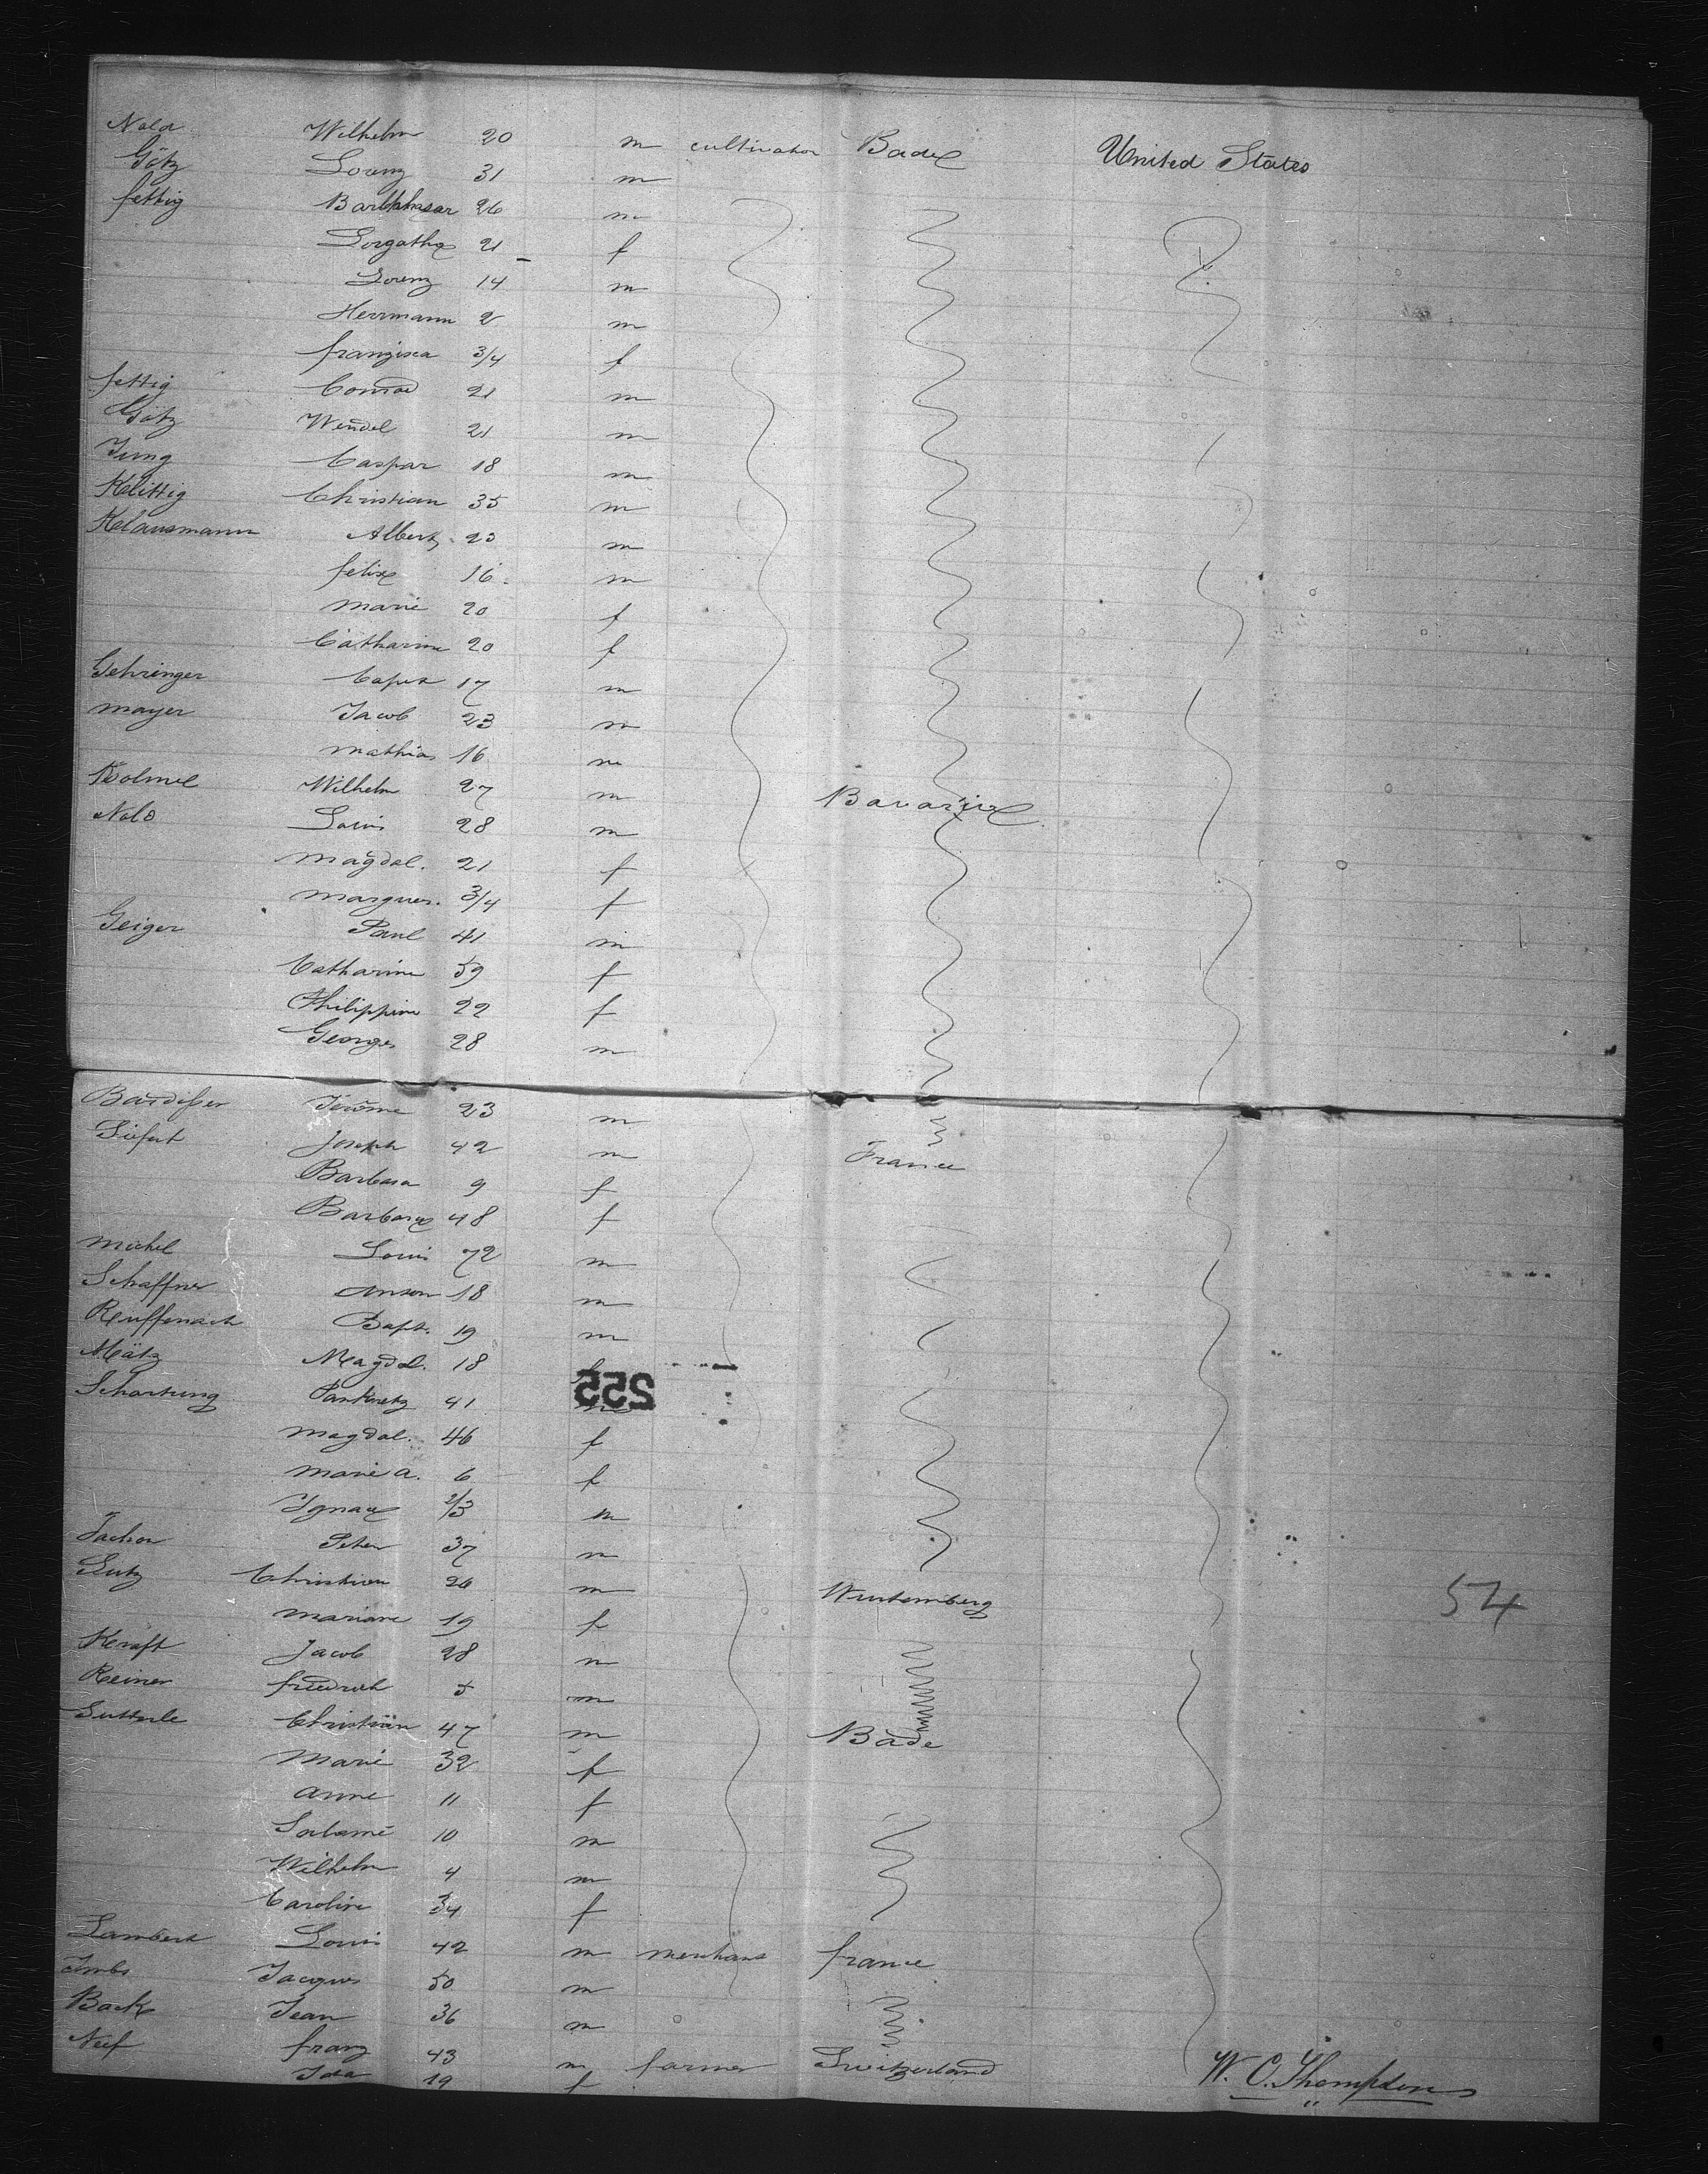 Nold Wilhelm 20 m cultivator Bade United States
Götz Lorenz 31 m
fettig Balthasar 26 m
21 f
Lorenz 14 m
Herrmann 2 m
franzisca 3/4 f
fettig Conrad 21 m
Götz Wendel 21 m
Jung Caspar 18 m
Klittig Christian 35 m
Klausmann Albert 23 m
felix 16 m
Marie 20 f
Catharine 20 f
Gehringer 17 m
Mayer Jacob 23 m
Mathias 16 m
Wilhelm 27 m Bavaria
Nold Louis 28 m
Magdal. 21 f
Marguer. 3/4 f
Geiger Paul 41 m
Catharine 59 f
Philippine 22 f
Georges 28 m
Jérôme 23 m
Siefert Joseph 42 m France
Barbara 9 f
Barbara 48 f
Michel Louis 72 m
Schaffner Anton 18 m
Reiffenach Bapt. 19 m
Mätz Magdal. 18 f
255
Schartung Pankretz 41 m
Magdal. 46 f
Marie A. 6 f
Ignace m
Peter 37 m
Lutz Christian 26 m Wurtemberg
54
Mariane 19 f
Kraft Jacob 28 m
Reiner friedrich 5 m
Sutterle Christian 47 m Bade
Marie 32 f
Anne 11 f
Salomé 10 m
Wilhelm 4 m
Caroline 3/4 f
Lambert Louis 42 m merchant france
Imbs Jacques 50 m
Back Jean 36 m
Neef franz 43 m farmer Switzerland
Ida 19 f
W. C. Thompson